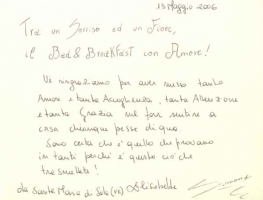 13 Maggio 2006
Tra un Sorriso ed un Fiore,
il Bed & Breakfast con Amore!
Vi ringraziamo per aver messo tanto
Amore e tanta Accoglienza, tanta Attenzione
e tanta Grazia nel far sentire a
casa chiunque passe di qua.
Sono certa che è quello che provano
in tanti perché è questo ciò che
trasmettete!
da Santa Maria di Sala (VE)